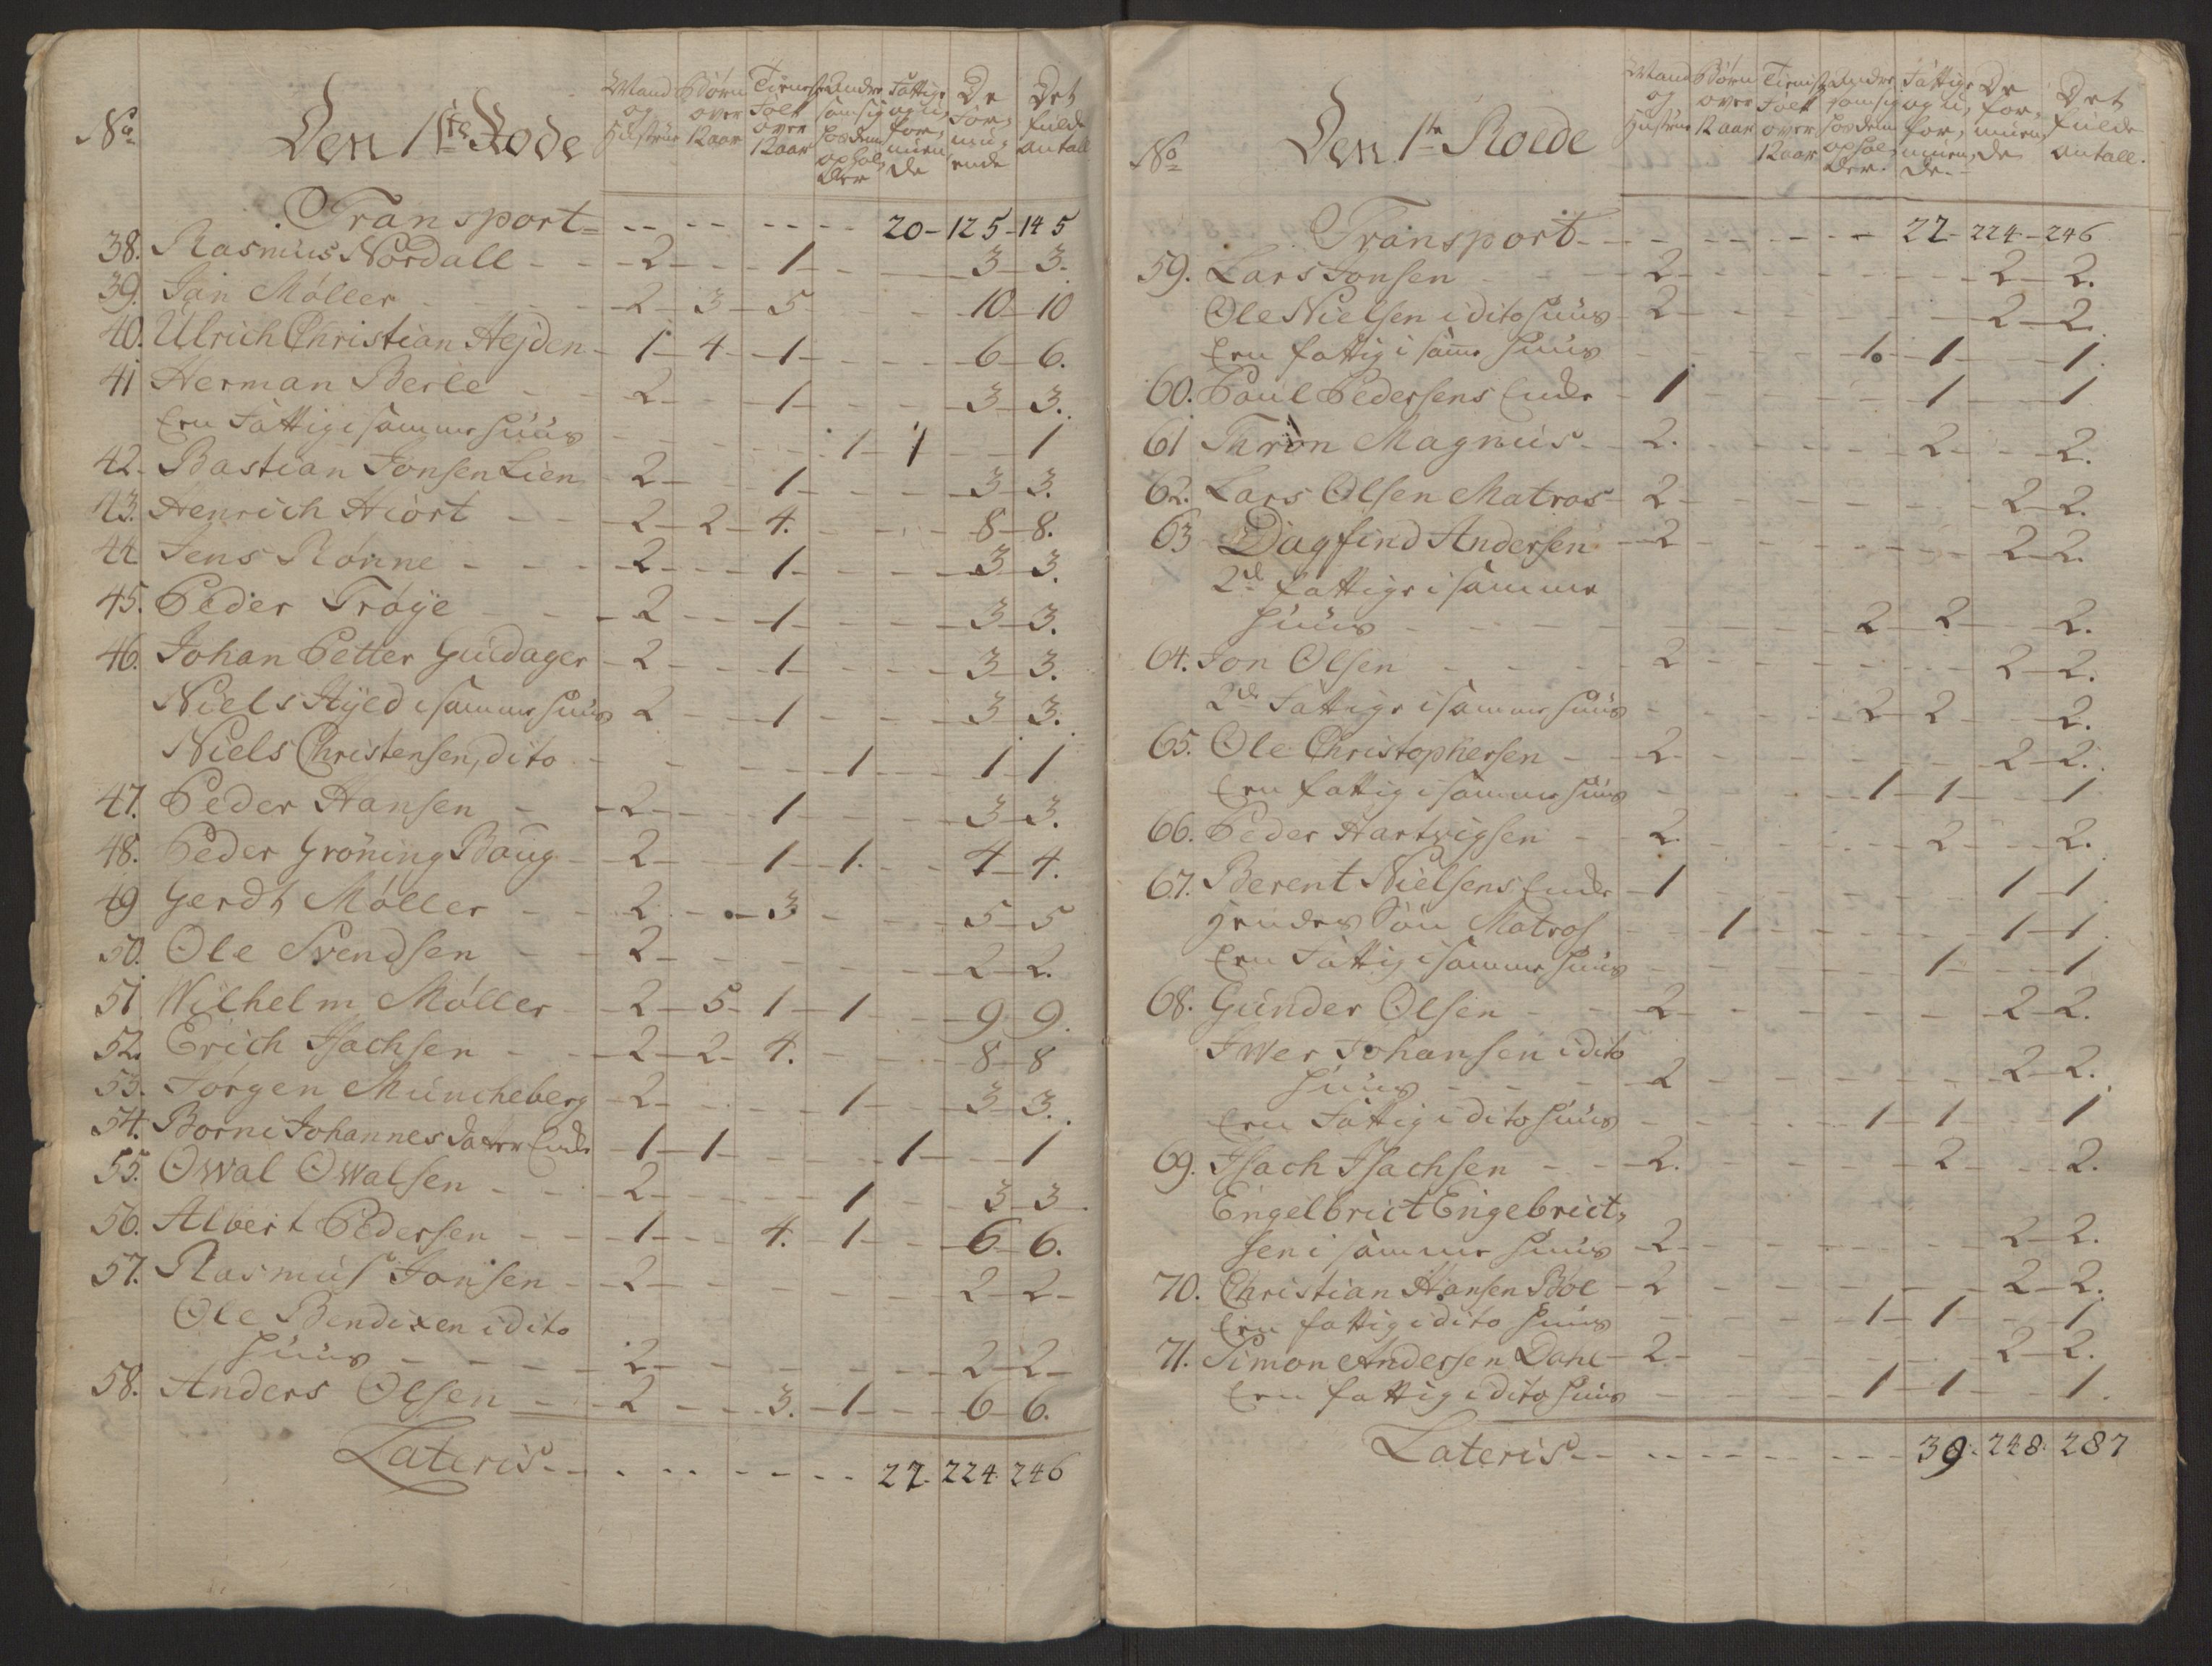 No Den 1ste Rode
Mand og Hustrue
Børn over 12 aar
Tieneste Folk over 12 aar
Andre som sig hos dem ophol, der
Fattige og u, for, muen, de
De For, mu, ende
Det fulde Antall
Transport - - - - 20 - 125 - 145
38. Rasmus Nordall - 2 - 1 - 3 - 3.
39. Jan Møller - 2 - 3 - 5 - 10 - 10
40. Ulrich Christian Hejden - 1 - 4 - 1 - 6 - 6.
41 Herman Berle - 2 - 1 - 3 - 3.
Een Fattig i samme Huus - 1 - 1 - 1
42. Bastian Jonsen Lien - 2 - 1 - 3 - 3.
43. Henrich Hiort - 2 - 2 - 4. - 8 - 8.
44 Jens Rønne - 2 - 1 - 3 - 3.
45. Peder Trøye - 2 - 1 - 3 - 3.
46. Johan Petter Guldager - 2 - 1 - 3 - 3.
Niels Hÿed i samme Huus 2 - 1 - 3 - 3.
Niels Christensen, dito - 1 - 1 - 1
47. Peder Hansen - 2 - 1 - 3 - 3.
48. Peder Grøning Baug - 2 - 1 - 1. - 4 - 4.
49 Gerdt Møller - 2 - 3 - 5 - 5
50. Ole Svendsen - 2 - 2 - 2.
51 Wilhelm Møller - 2 - 5 - 1 - 1 - 9 - 9.
52. Erich Isachsen - 2 - 2 - 4. - 8 - 8
53. Jørgen Müncheberg - 2 - 1 - 3 - 3.
54. Borni Johannes Enke - 1 - 1 - 1 - 1
55. Owal Owalsen - 2 - 1 - 3 - 3
56. Albert Pedersen - 1 - 4. - 1 - 6 - 6.
57. Rasmus Jonsen - 2 - 2 - 2 -
Ole Bendixen i dito
Huus - 2 - 2 - 2 -
58. Anders Olsen - 2 - 3. - 1 - 6 - 6.
Lateris - - - 22 - 224 - 246
No Den 1te Roede
Mand og Hustrue
Børn over 12 aar
Tieneste Folk over 12 aar
Andre som sig hos dem ophol, der.
Fattige og u, for, muen, de.
De for, muen, de
Det fulde Antall.
Transport - - - 22 - 224 - 246
59. Lars Jonsen - 2 - 2 - 2.
Ole Nielsen i dito Huus - 2 - 2 - 2.
Een fattig i samme Huus - 1 - 1 - 1.
60. Poul Pedersens Enke - 1 - 1 - 1
61 Thron Magnus - 2. - 2 - 2.
62. Lars Olsen Matros - 2 - 2 - 2.
63 Dagfind Andersen - 2 - 2 - 2.
2de fattige i samme
Huus - 2 - 2 - 2.
64. Jon Olsen - 2 - 2 - 2.
2de Fattige i samme Huus - 2 - 2 - 2.
65. Ole Christophersen - 2 - 2 - 2.
Een fattig i samme Huus - 1 - 1 - 1
66. Peder Hartvigsen - 2. - 2 - 2.
67. Berent Nielsens Enke - 1 - 1 - 1
Hendes Søn Matros - 1 - 1 - 1.
Een Fattig i samme Huus - 1 - 1
68. Gunder Olsen - 2 - 2 - 2.
Iwer Johansen i dito
Huus - 2 - 2 - 2.
Een Fattig i dito Huus - 1 - 1 - 1
69. Isach Isachsen - 2. - 2 - 2.
Engelbrict Engebrict,
sen i samme Huus - 2 - 2 - 2.
70. Christian Hansen Boe - 2 - 2 - 2.
Een fattig i dito Huus - 1 - 1 - 1
71. Simon Andersen Dahl - 2 - 2 - 2.
Een fattig i dito Huus - 1 - 1 - 1.
Lateris - - - 39 - 248. 287